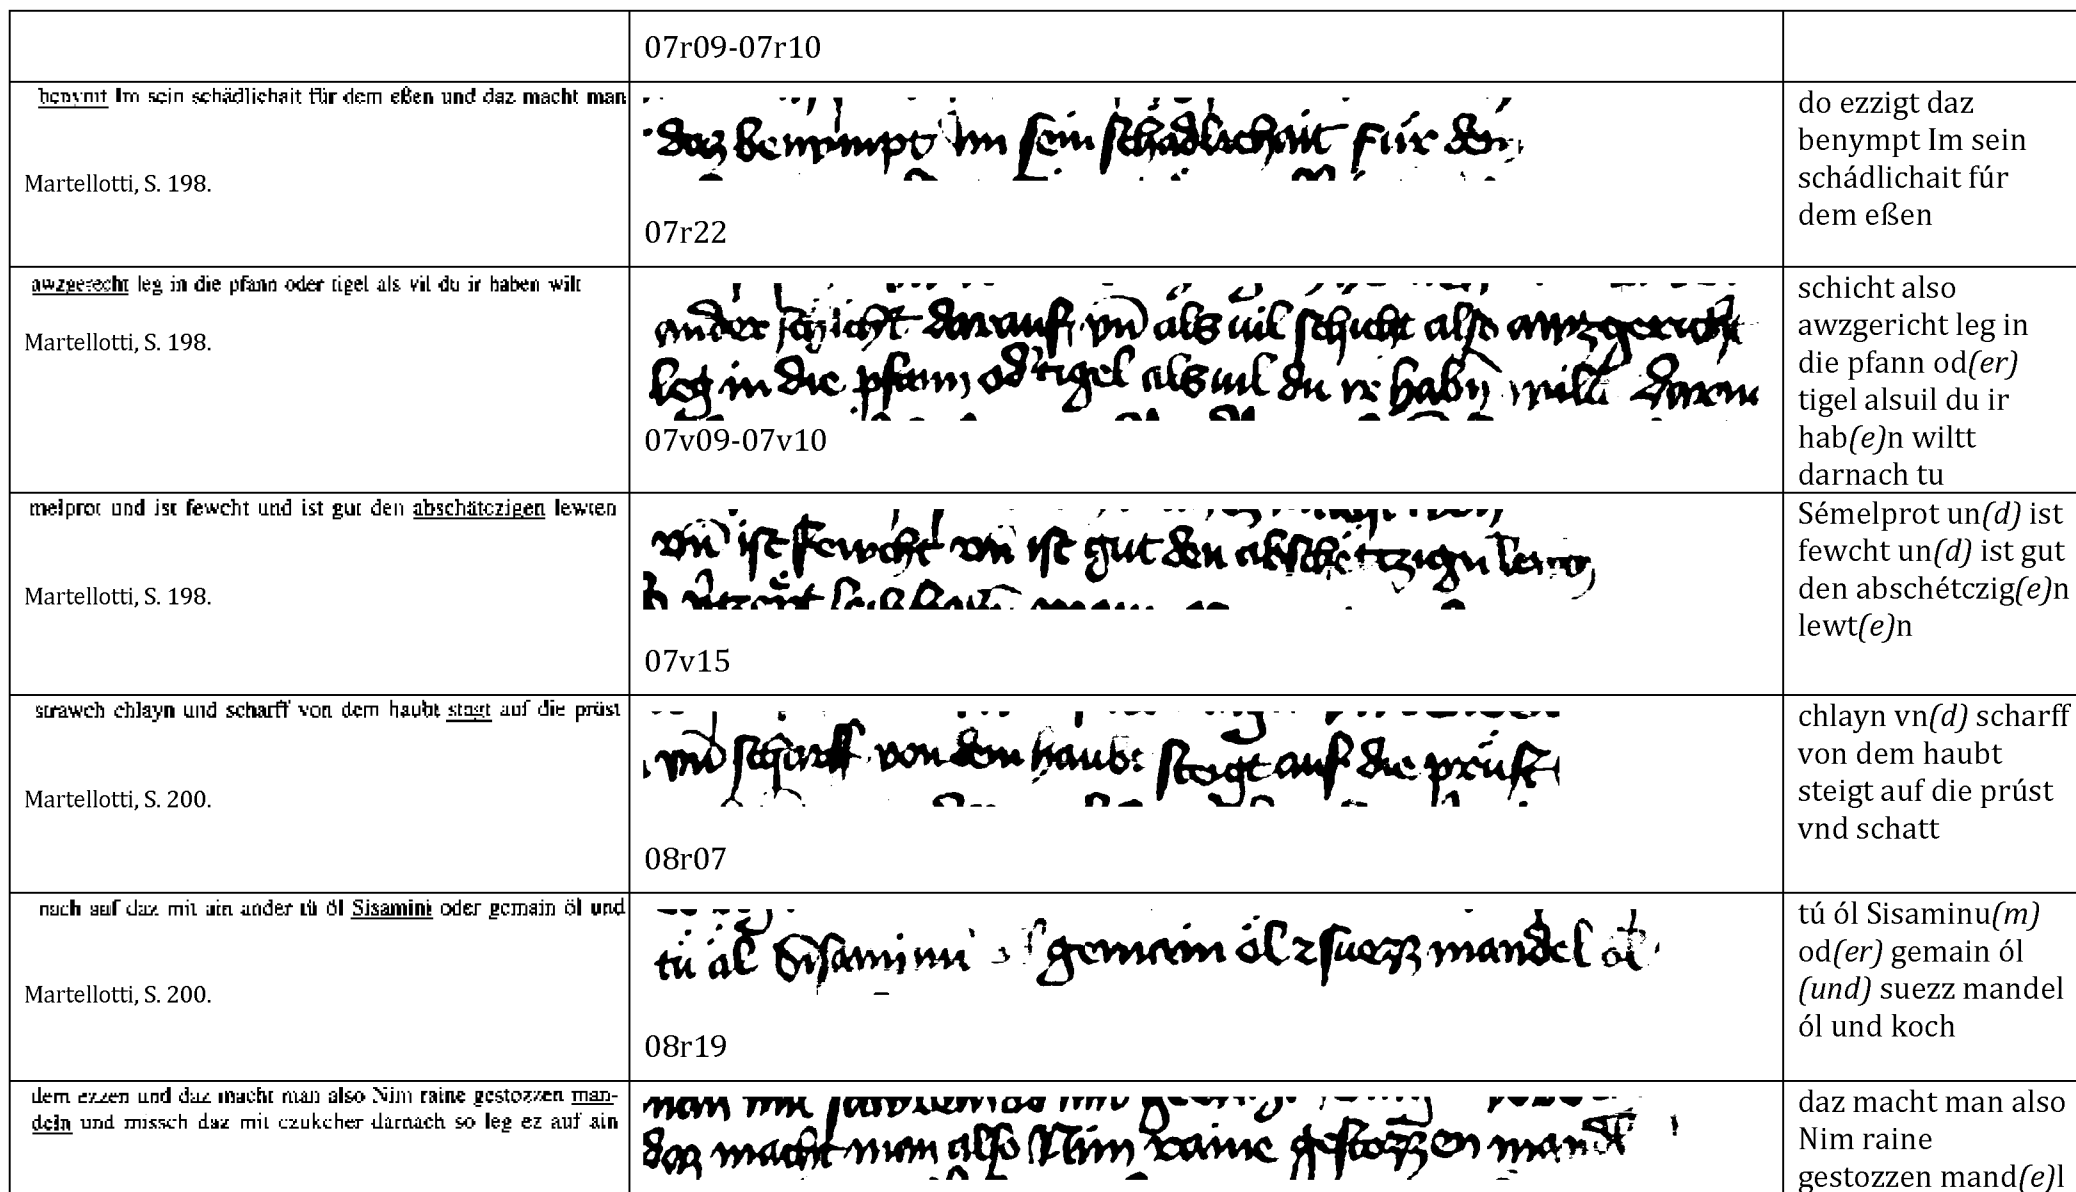 07r09-07r10
benymt Im sein schädlichait für dem eßen und daz macht man
Martellotti, S. 198.
daz benympt Im sein schádlichait fúr den
07r22
do ezzigt daz
benympt Im sein
schádlichait fúr
dem eßen
awzgerecht leg in die pfann oder tigel als vil du ir haben wilt
Martellotti, S. 198.
ander schicht darauf vn als uil schicht also awzgericht
leg in die pfann od tigel alsuil du ir habn wiltt darnn
07v09-07v10
schicht also
awzgericht leg in
die pfann od(er)
tigel alsuil du ir
hab(e)n wiltt
darnach tu
melprot und ist fewcht und ist gut den abschätczigen lewten
Martellotti, S. 198.
vn ist fewcht vn ist gut den abschétczign lewtn
07v15
Sémelprot un(d) ist
fewcht un(d) ist gut
den abschétczig(e)n
lewt(e)n
strawch chlayn und scharff von dem haubt stogt auf die prüst
Martellotti, S. 200.
vnd scharff von dem haubt steigt auf die prúst
08r07
chlayn vn(d) scharff
von dem haubt
steigt auf die prúst
vnd schatt
nach auf daz mit ain ander tü öl Sisamini oder gemain öl und
Martellotti, S. 200.
tú ól Sisaminu gemain ól suezz mandel ól
08r19
tú ól Sisaminu(m)
od(er) gemain ól
(und) suezz mandel
ól und koch
dem ezzen und daz macht man also Nim raine gestozzen man-
deln und missch daz mit czukcher darnach so leg ez auf ain
daz macht man also Nim raine gestozzen mandl
daz macht man also
Nim raine
gestozzen mand(e)l